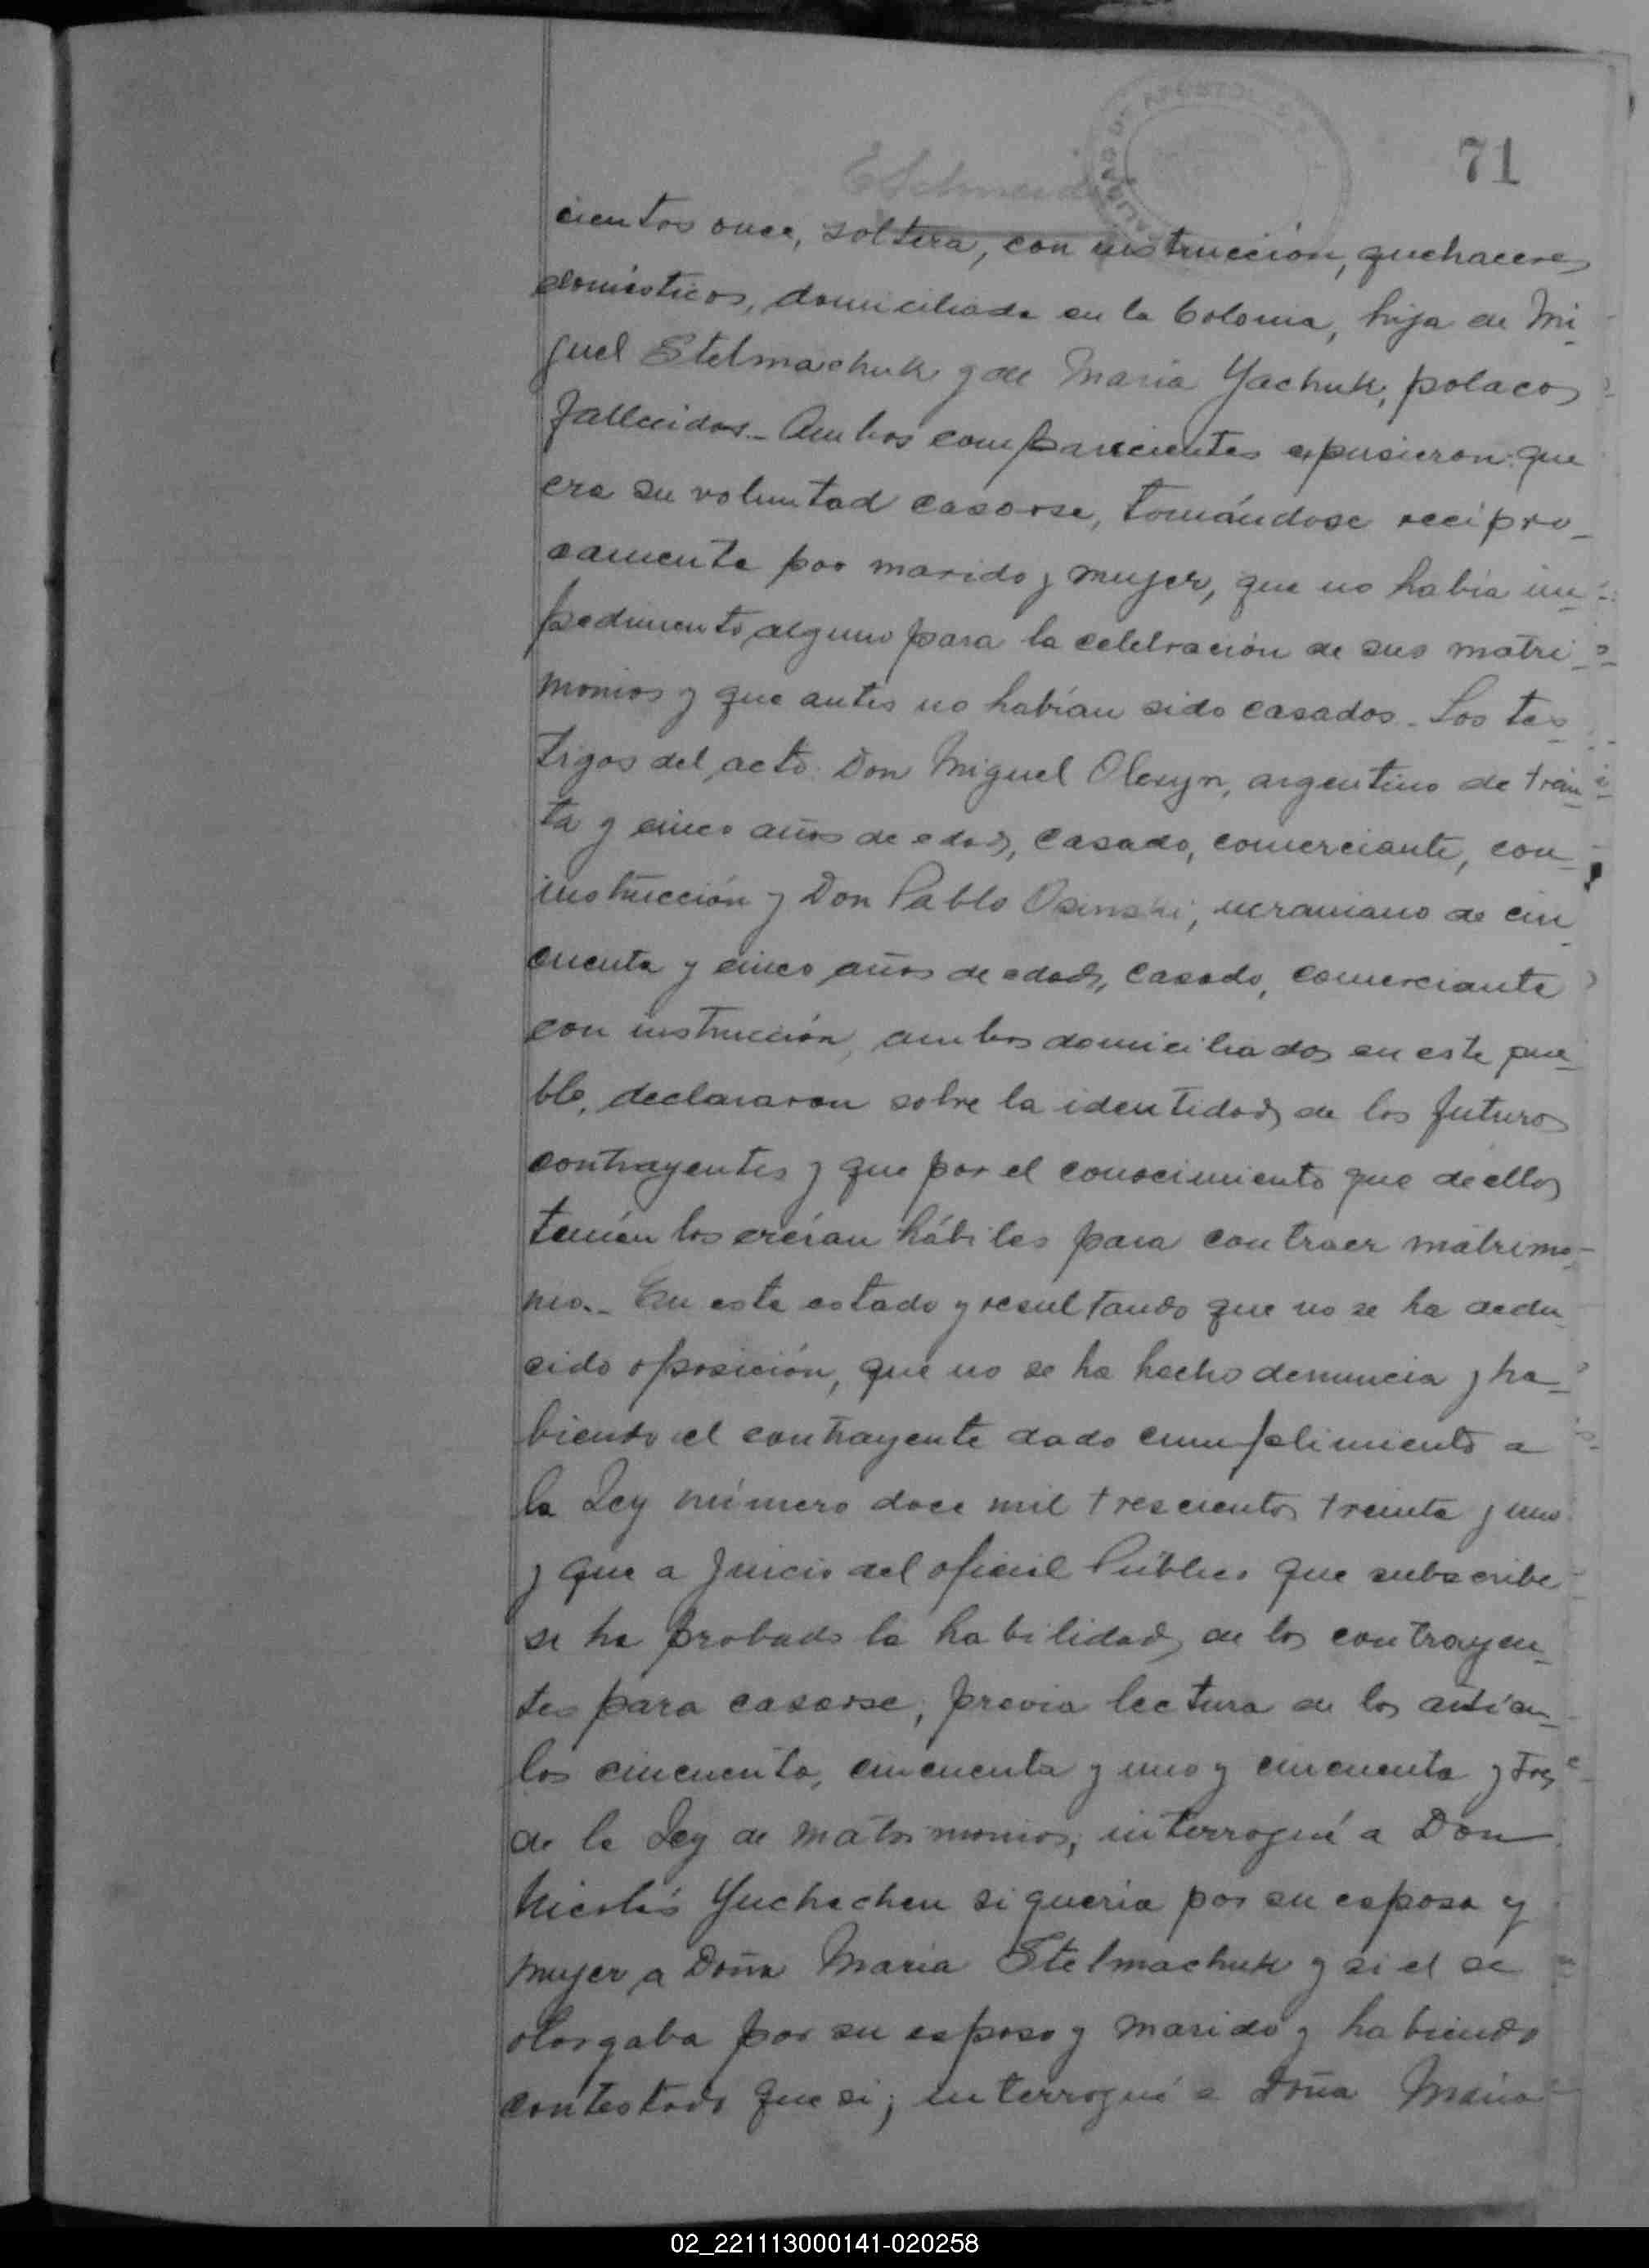 JUZGADO DE APOSTOLES
71
cientos once, soltera, con instrucción, quehaceres
domésticos, domiciliada en la Colonia, hija de Mi
guel Stelmachuk y de Maria Yachuk, polacos
fallecidos.- Ambos comparecientes expusieron: que
era su voluntad casarse, tomándose recipro-
camente por marido y mujer, que no habia im-
pedimento alguno para la celebración de sus matri-
monios y que antes no habían sido casados.- Los tes-
tigos del acto: Don Miguel Olesyn, argentino de trein-
ta y cinco años de edad, casado, comerciante, con
instrucción y Don Pablo Osinski, ucraniano de cin-
cuenta y cinco años de edad, casado, comerciante
con instrucción, ambos domiciliados en este pue-
blo, declararon sobre la identidad de los futuros
contrayentes y que por el conocimiento que de ellos
tenían los creían hábiles para contraer matrimo-
nio.- En este estado y resultando que no se ha dedu-
cido oposición, que no se ha hecho denuncia y ha-
biendo el contrayente dado cumplimiento a
la Ley número doce mil trescientos treinta y uno
y que a juicio del oficial Público que subscribe
se ha probado la habilidad de los contrayen-
tes para casarse, previa lectura de los articu-
los cincuenta, cincuenta y uno y cincuenta y tres
de la Ley de matrimonios, interrogué a Don
Nicolás Yuchechen si quería por su esposa y
mujer a Doña Maria Stelmachuk y si el se
otorgaba por su esposo y marido y habiendo
contestado que si; interrogué a Doña Maria
02_221113000141-020258